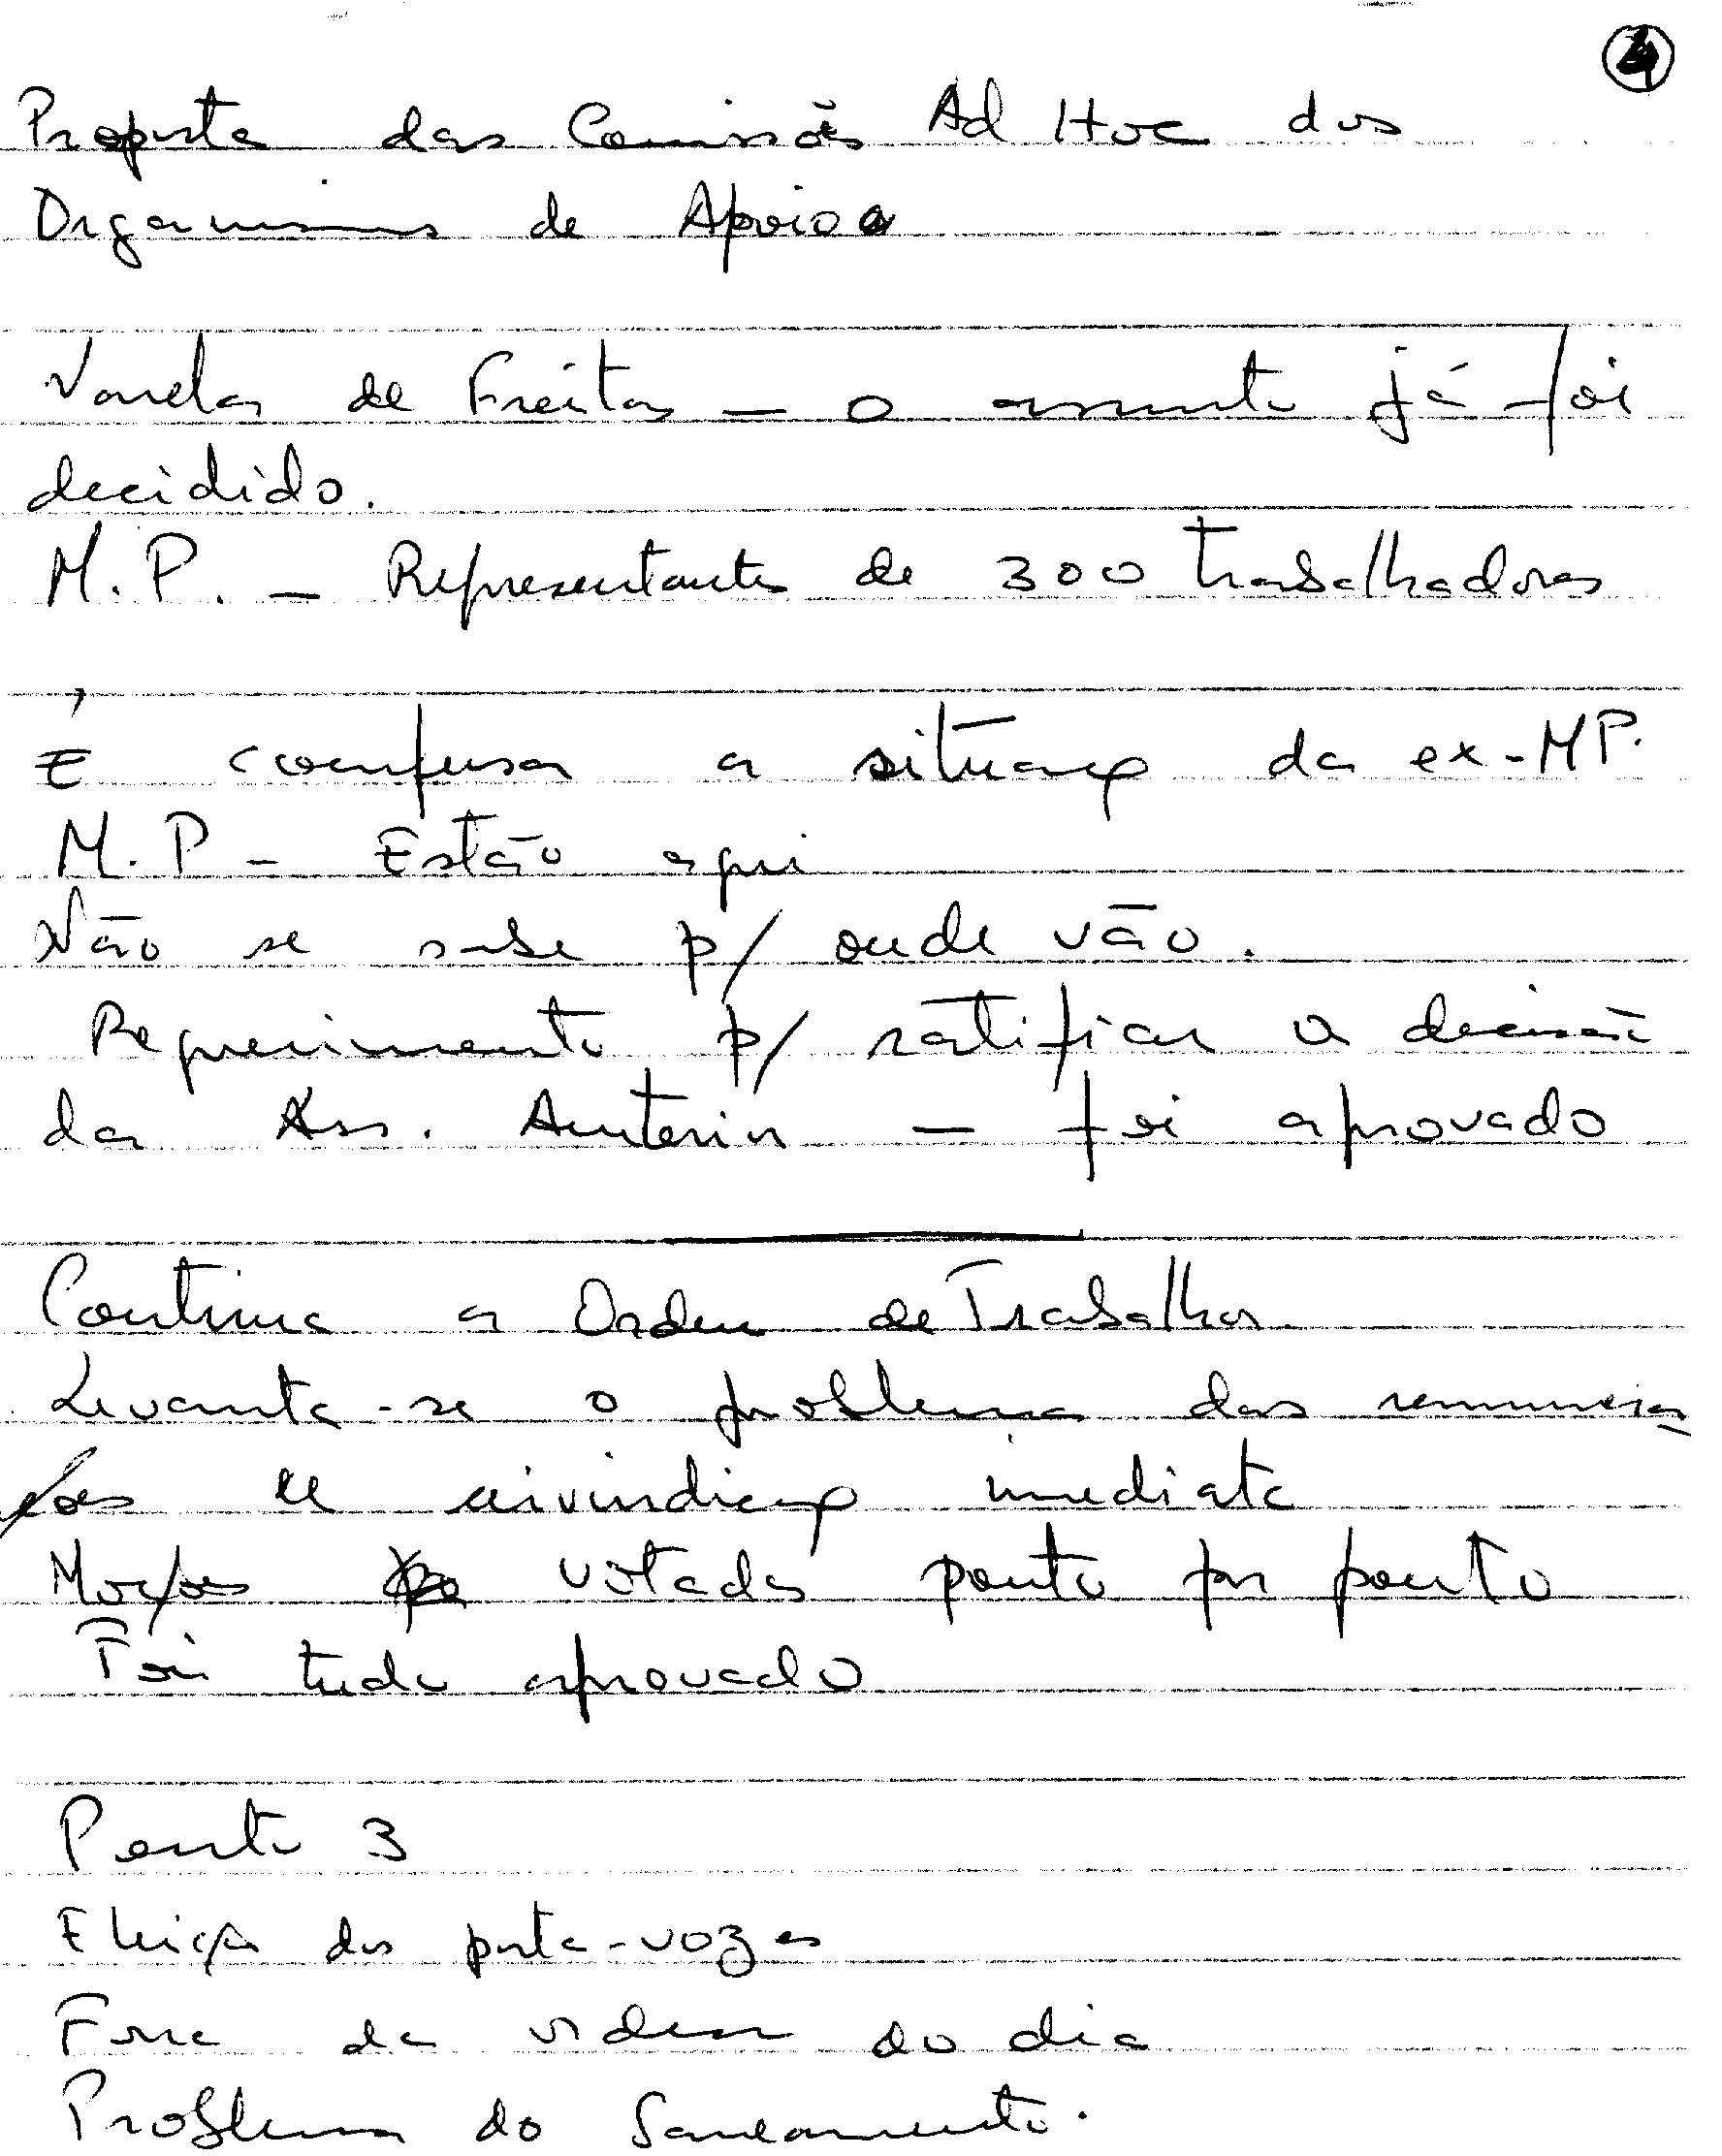 4
Proposta das Comissões Ad Hoc dos
Organismos de Apoio
Varela de Freitas — o assunto já foi
decidido.
M.P. — Representantes de 300 trabalhadores
É confusa a situação da ex-MP.
M.P — Estão aqui
Não se sabe p/ onde vão.
Requerimento p/ ratificar a decisão
da Ass. Anterior — foi aprovado
Continua a Ordem de Trabalhos.
Levanta-se o problema das remunera
ções e reivindicação imediata
Moções votadas ponto por ponto
Foi tudo aprovado
Ponto 3
Eleição dos porta-vozes
Fora da ordem do dia
Problema do Saneamento.